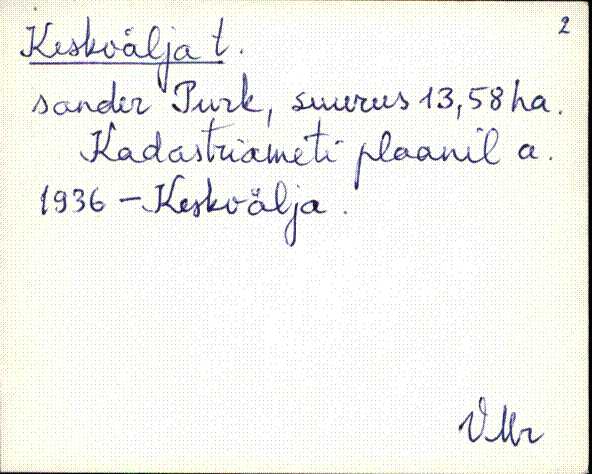 2
Keskvälja t.
sander Purk, suurus 13,58 ha.
Kadastriameti plaanil a.
1936 – Keskvälja.
VMr